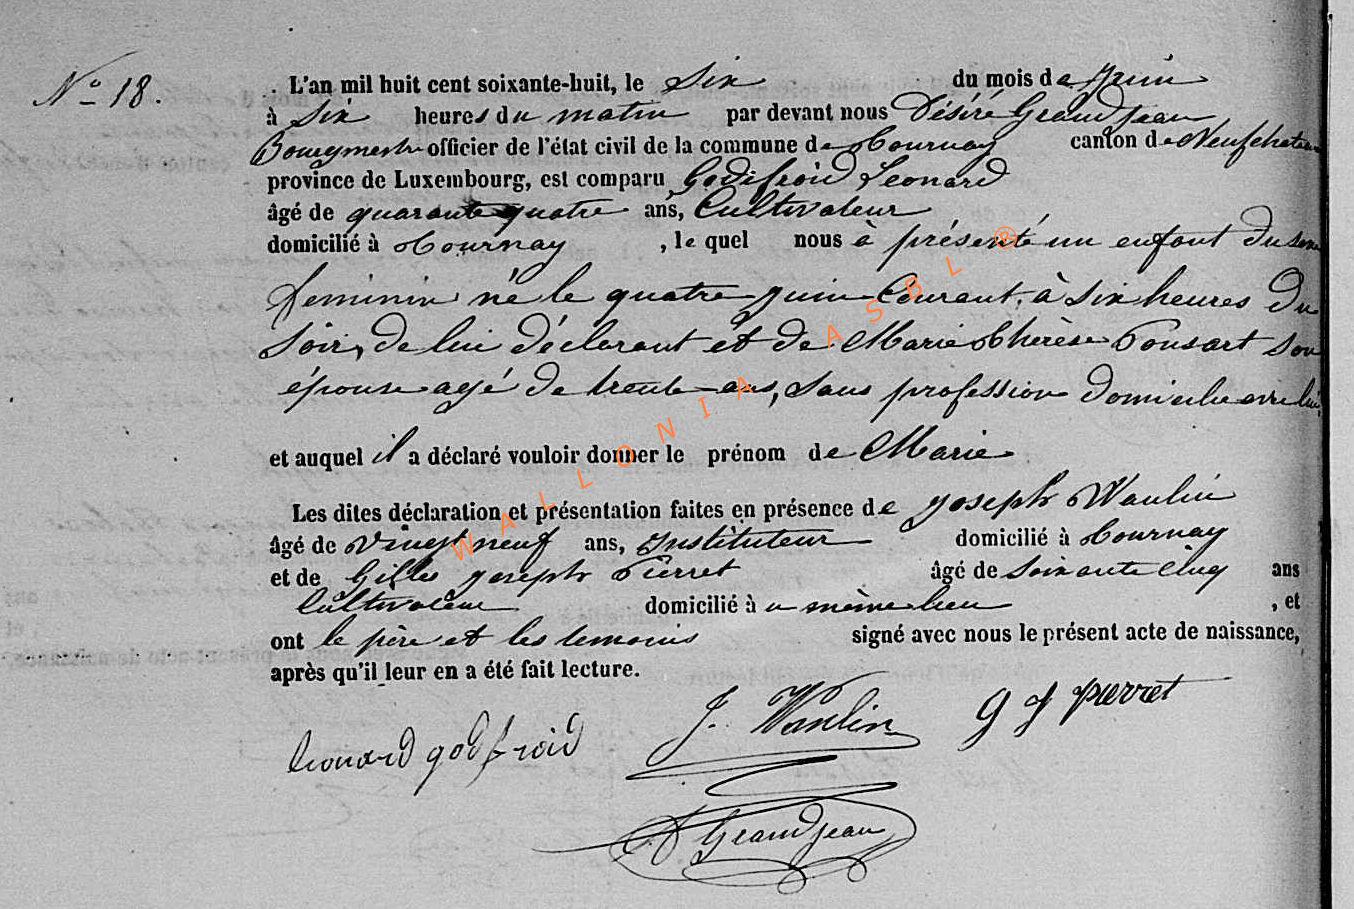 No 18.
L'an mil huit cent soixante-huit, le Six du mois de Juin
à Six heures du matin par devant nous Désiré Grandjean
Bourgmestre officier de l'état civil de la commune de Tournay canton de Neufchateau
province de Luxembourg, est comparu Godfroid Leonard
âgé de quarante quatre ans, Cultivateur
domicilié à Tournay, le quel nous à présenté un enfant du sexe
feminin né le quatre Juin Courant, à Six heures du
Soir, de lui déclarant et de Marie Thérèse Ponsart son
épouse agé de trente ans, sans profession domicilié avec lui,
et auquel il a déclaré vouloir donner le prénom de Marie
Les dites déclaration et présentation faites en présence de Joseph Waulin
âgé de Vingt neuf ans, Instituteur domicilié à Tournay
et de Gilles Joseph Pierret âgé de Soixante cinq ans
Cultivateur domicilié à u même lieu, et
ont le père et les temoins signé avec nous le présent acte de naissance,
après qu'il leur en a été fait lecture.
Leonard godfroid J. Waulin G J pierret
D Grandjean
WALLONIA ASBL ®